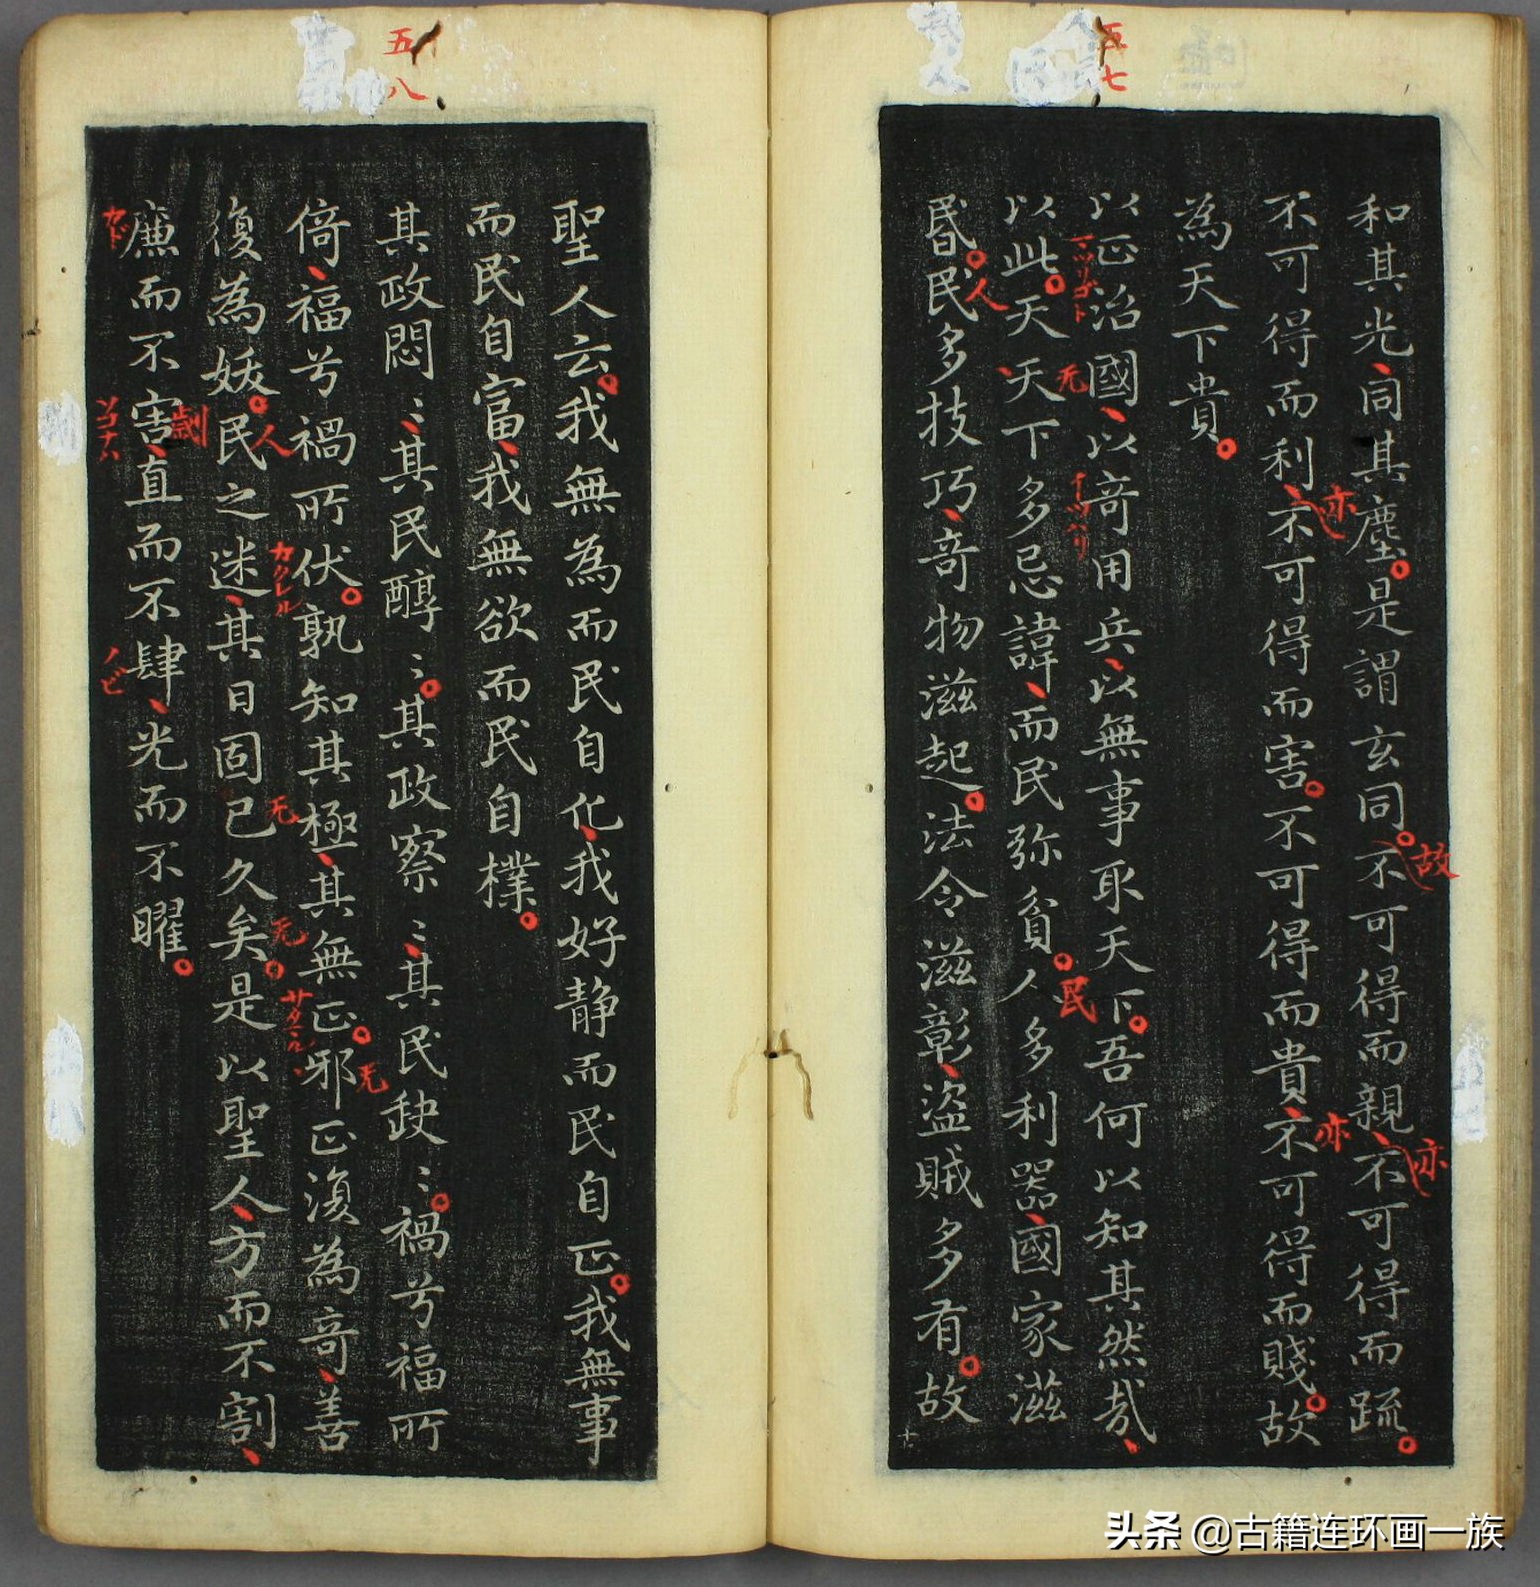 五七
和其光同其塵是謂玄同不可得而親不可得而疏
故
亦
不可得而利不可得而害不可得而貴不可得而賤故
亦
亦
為天下貴
以正治國以竒用兵以無事取天下吾何以知其然㢤
以此天天下多忌諱而民弥貧人多利噐國家滋
无
民
昬民多技巧竒物滋起法令滋彰盗賊多有故
人
五八
聖人云我無為而民自化我好静而民自正我無事
而民自富我無欲而民自樸
其政悶〻其民醇〻其政察〻其民缺〻禍兮福所
倚福兮禍所伏孰知其極其無正邪正復為竒善
カクレル
无
復為妖民之迷其日固已久矣是以聖人方而不割
人
无
无
廉而不害直而不肆光而不曜
カド
劌
ノビ
头条 @古籍连环画一族